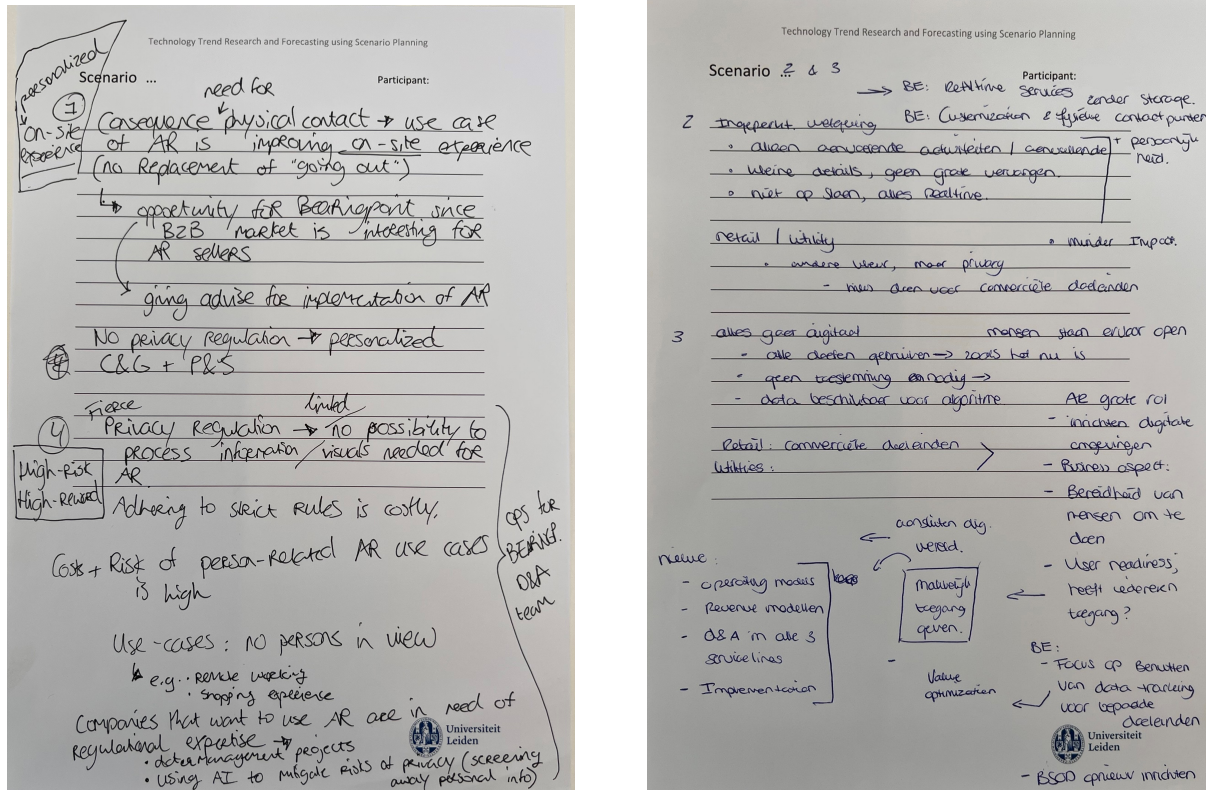 Technology Trend Research and Forecasting using Scenario Planning
Scenario ...
Participant:
personalized
on-site
experience
1
need for
Consequence physical contact → use case
of AR is improving on-site experience
(no Replacement of "going out")
↳ opportunity for Bearingpoint since
B2B market is interesting for
AR sellers
giving advise for implementation of AR
No privacy regulation → personalized
C&G + P&S
4
High-Risk
High-Reward
Fierce
limited
Privacy Regulation → no possibility to
process information/visuals needed for
AR.
Adhering to strict rules is costly.
Costs + Risk of person-related AR use cases
is high
Use-cases: no persons in view
↳ e.g. • Remote working
• Shopping experience
Companies that want to use AR are in need of
regulational expertise →
• datamanagement projects
• Using AI to mitigate risks of privacy (screening
away personal info)
ops for
BEARINGP.
D&A
team
Universiteit
Leiden
Technology Trend Research and Forecasting using Scenario Planning
Scenario ... 2 & 3
Participant:
→ BE: Realtime services
zonder storage.
BE: Customization & fysieke contactpunten
+ persoonlijkheid.
2 Ingeperkt. welgeving
• alleen aanvoerende activiteiten / aanvullende
• kleine details, geen grote vervangen.
• niet op slaan, alles realtime.
retail / utility
• minder Impact.
• andere kleur, maar privacy
- niks doen voor commerciële doeleinden
3 alles gaat digitaal
mensen staan ervoor open
- alle doelen gebruiken → zoals het nu is
- geen toestemming nodig →
- data beschikbaar voor algoritme
AR grote rol
- inrichten digitale
omgevingen
Retail: commerciële doeleinden
Utilities:
- Business aspect:
- Bereidheid van
mensen om te
doen
- User readiness,
heeft iedereen
toegang?
aansluiten dig.
wereld.
makkelijk
toegang
geven.
nieuwe:
- operating models
- Revenue modellen
- D&A in alle 3
servicelines
- Implementation
Value
optimization
BE:
- Focus op Benutten
van data tracking
voor bepaalde
doeleinden
Universiteit
Leiden
- BSOD opnieuw inrichten